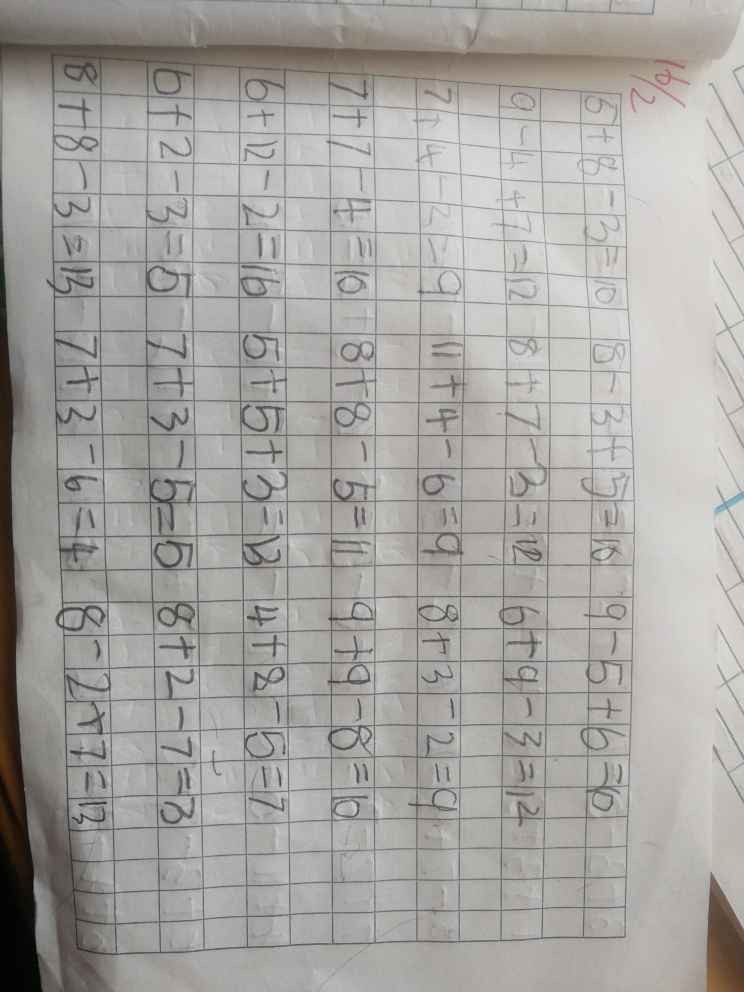 16/2
5+8-3=10 8-3+5=10 9-5+6=10
9-4+7=12 8+7-3=12 6+9-3=12
7+4-2=9 11+4-6=9 8+3-2=9
7+7-4=10 8+8-5=11 9+9-8=10
6+12-2=16 5+5+3=13 4+8-5=7
6+2-3=5 7+3-5=5 8+2-7=3
8+8-3=13 7+3-6=4 8-2+7=13